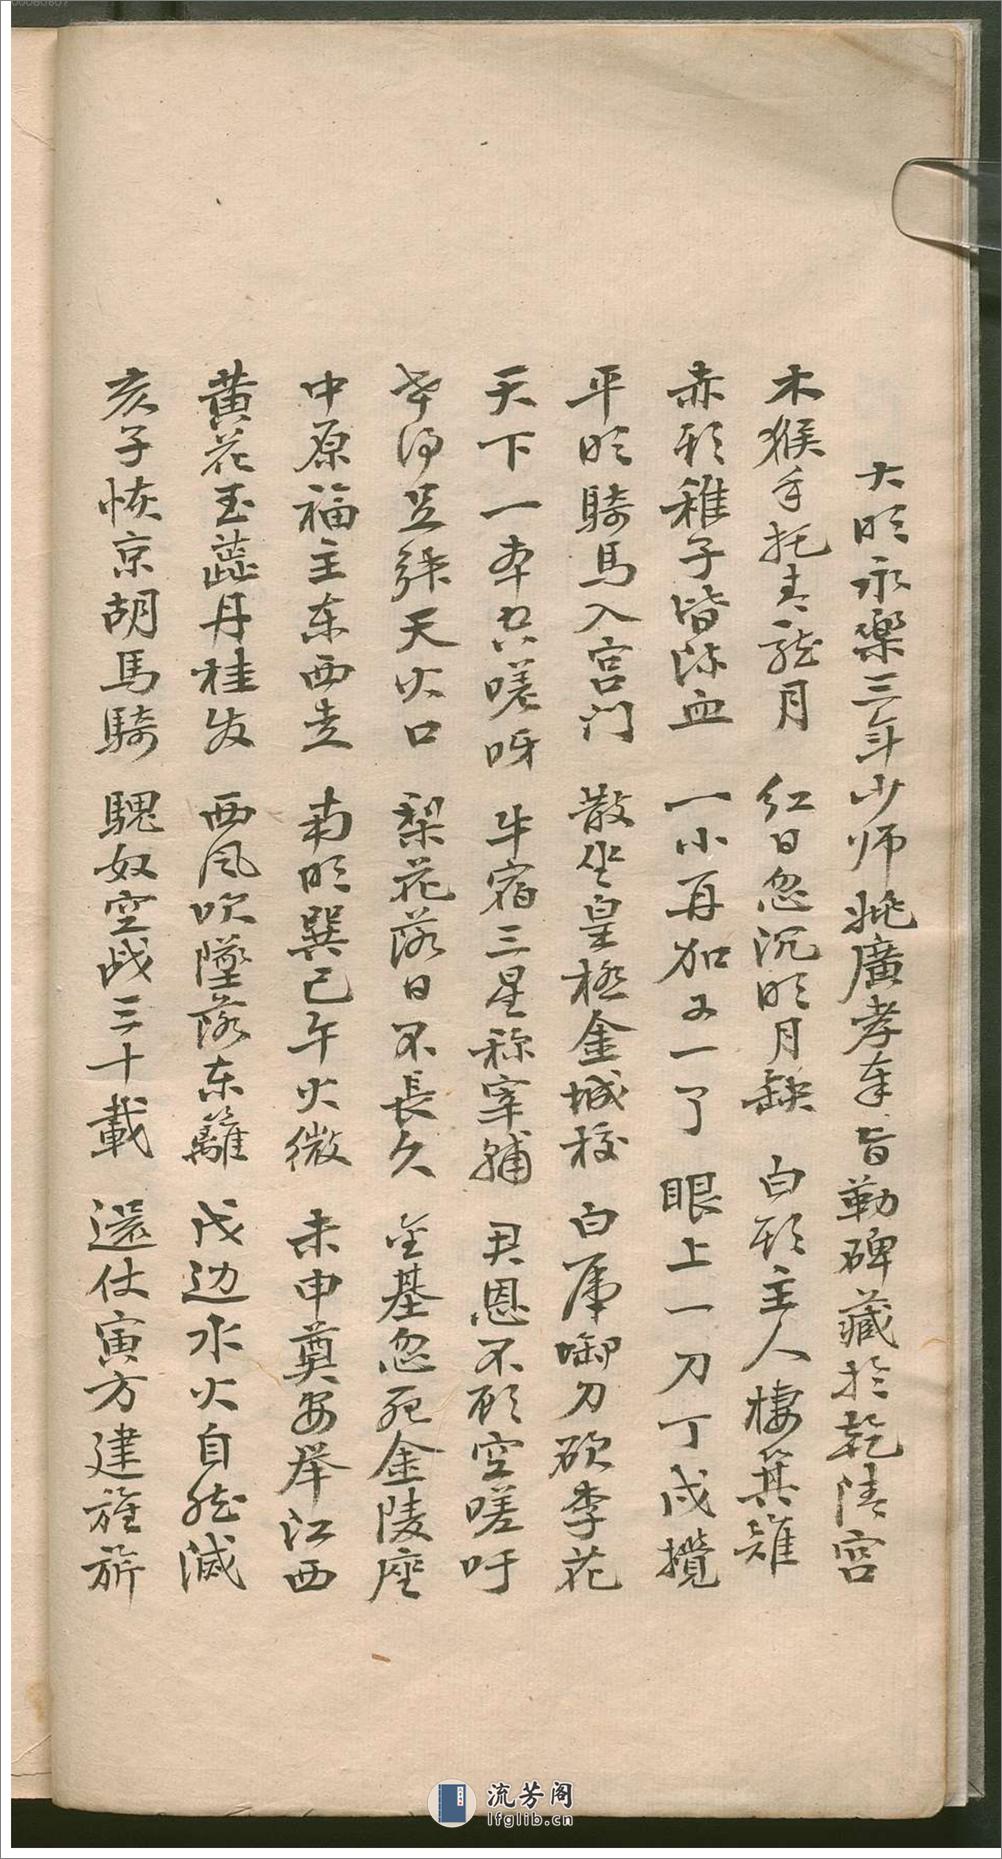 大明永樂三年少师姚廣孝奉旨勒碑藏於乾清宫
木猴手托青龍月 红日忽沉明月缺 白頭主人棲箕雉
赤頭稚子皆流血 一小再加又一了 眼上一刀丁戊攪
平明騎馬入宫门 散坐皇極金城校 白虎啣刀砍李花
天下一本只嗟呀 牛宿三星称宰輔 君恩不顧空嗟吁
天火口 梨花落日不長久 基忽死金陵座
中原福主东西走 南明巽巳午火微 未申奠安举江西
黄花玉蕋丹桂发 西风吹墜落东籬 戊边水火自然滅
亥子恢京胡馬騎 騩奴空战三十載 還仗寅方建旌旂
流芳阁
lfglib.cn